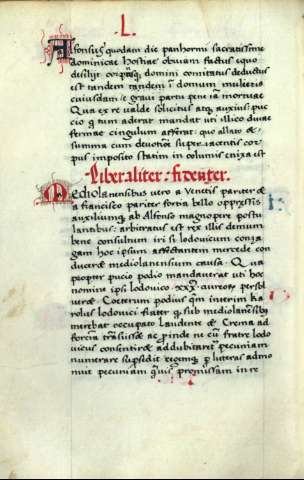 L.
Alfonsus quodam die panhormi sacratissime
dominicae hostiae obuiam factus equo
desilijt corpusq; domini comitatus deductus
est tandem tandem i domum mulieris
cuiusdam e graui partu pene iam mortuae
Qua ex re ualde solicitus atq; anxius: pu
cio q tum aderat mandat uti illico diuae
fermae cingulum afferat: quo allato &
summa cum deuotione super iacentis cor
pus imposito statim incolumis enixa est
Liberaliter. fidenter.
Mediolanensibus uero a Venetis pariter &
a francisco pariter fortia bello oppressis
auxiliumq; ab Alfonso magnopere postu
lantibus: arbitratus est rex illis demum
bene consultum iri si lodouicum conza
gam hoc ipsum affectantem mercede con
ducere mediolanensium causa. Qua
propter pucio podio mandauerat uti hoc
nomine ipsi lodouico xxx aureorum persol
ueret. Coeterum podius quom interim ka
rolus lodouici frater q sub mediolanensibus
merebat occupato laudente & Crema ad
sforciam transisset ac proinde ne cum fratre lodo
uicus consentiret addubitaret pecuniam
numerare supersedit regemq; per literas admo
nuit pecuniam promissam in re